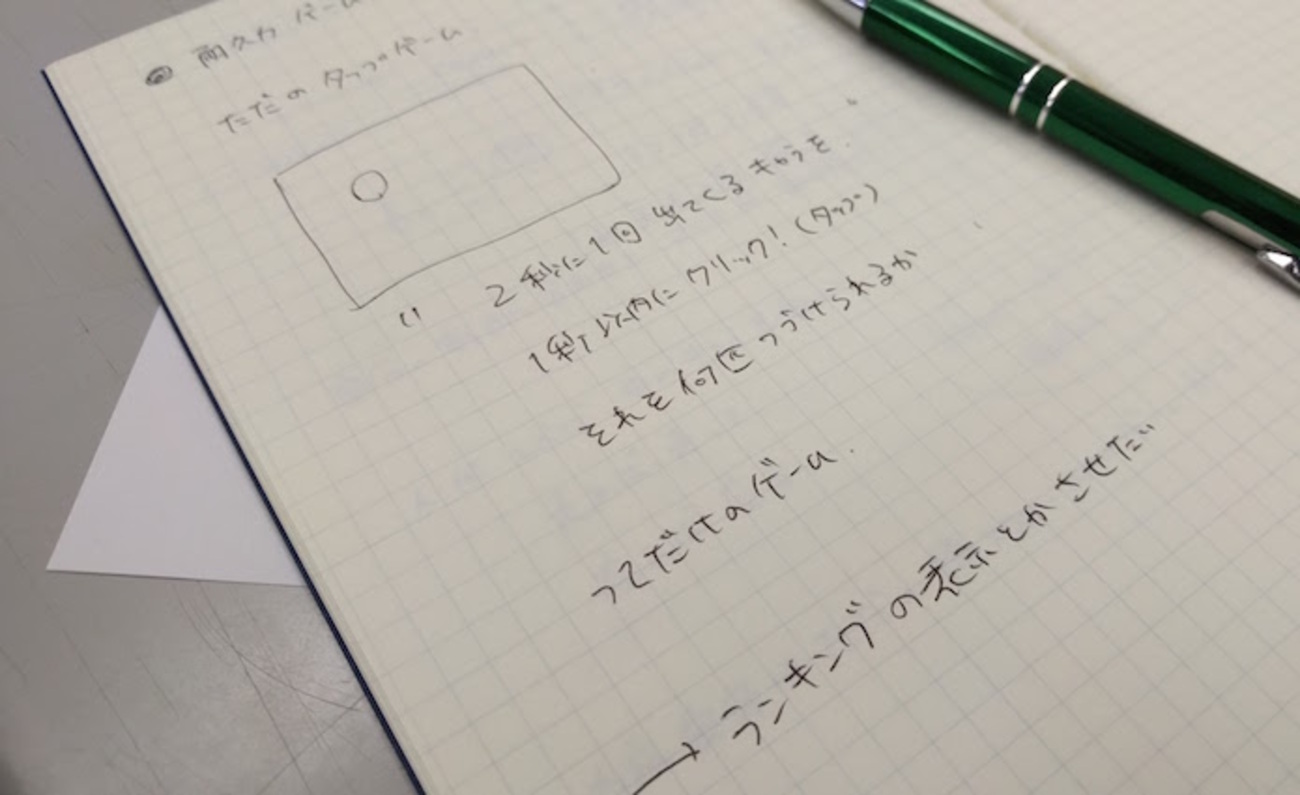 耐久力ゲーム
ただのタップゲーム
2秒に1回出てくるキャラを
1秒以内にクリック!(タップ)
それを何匹つづけられるか
ってだけのゲーム.
→ ランキングの表示とかさせた